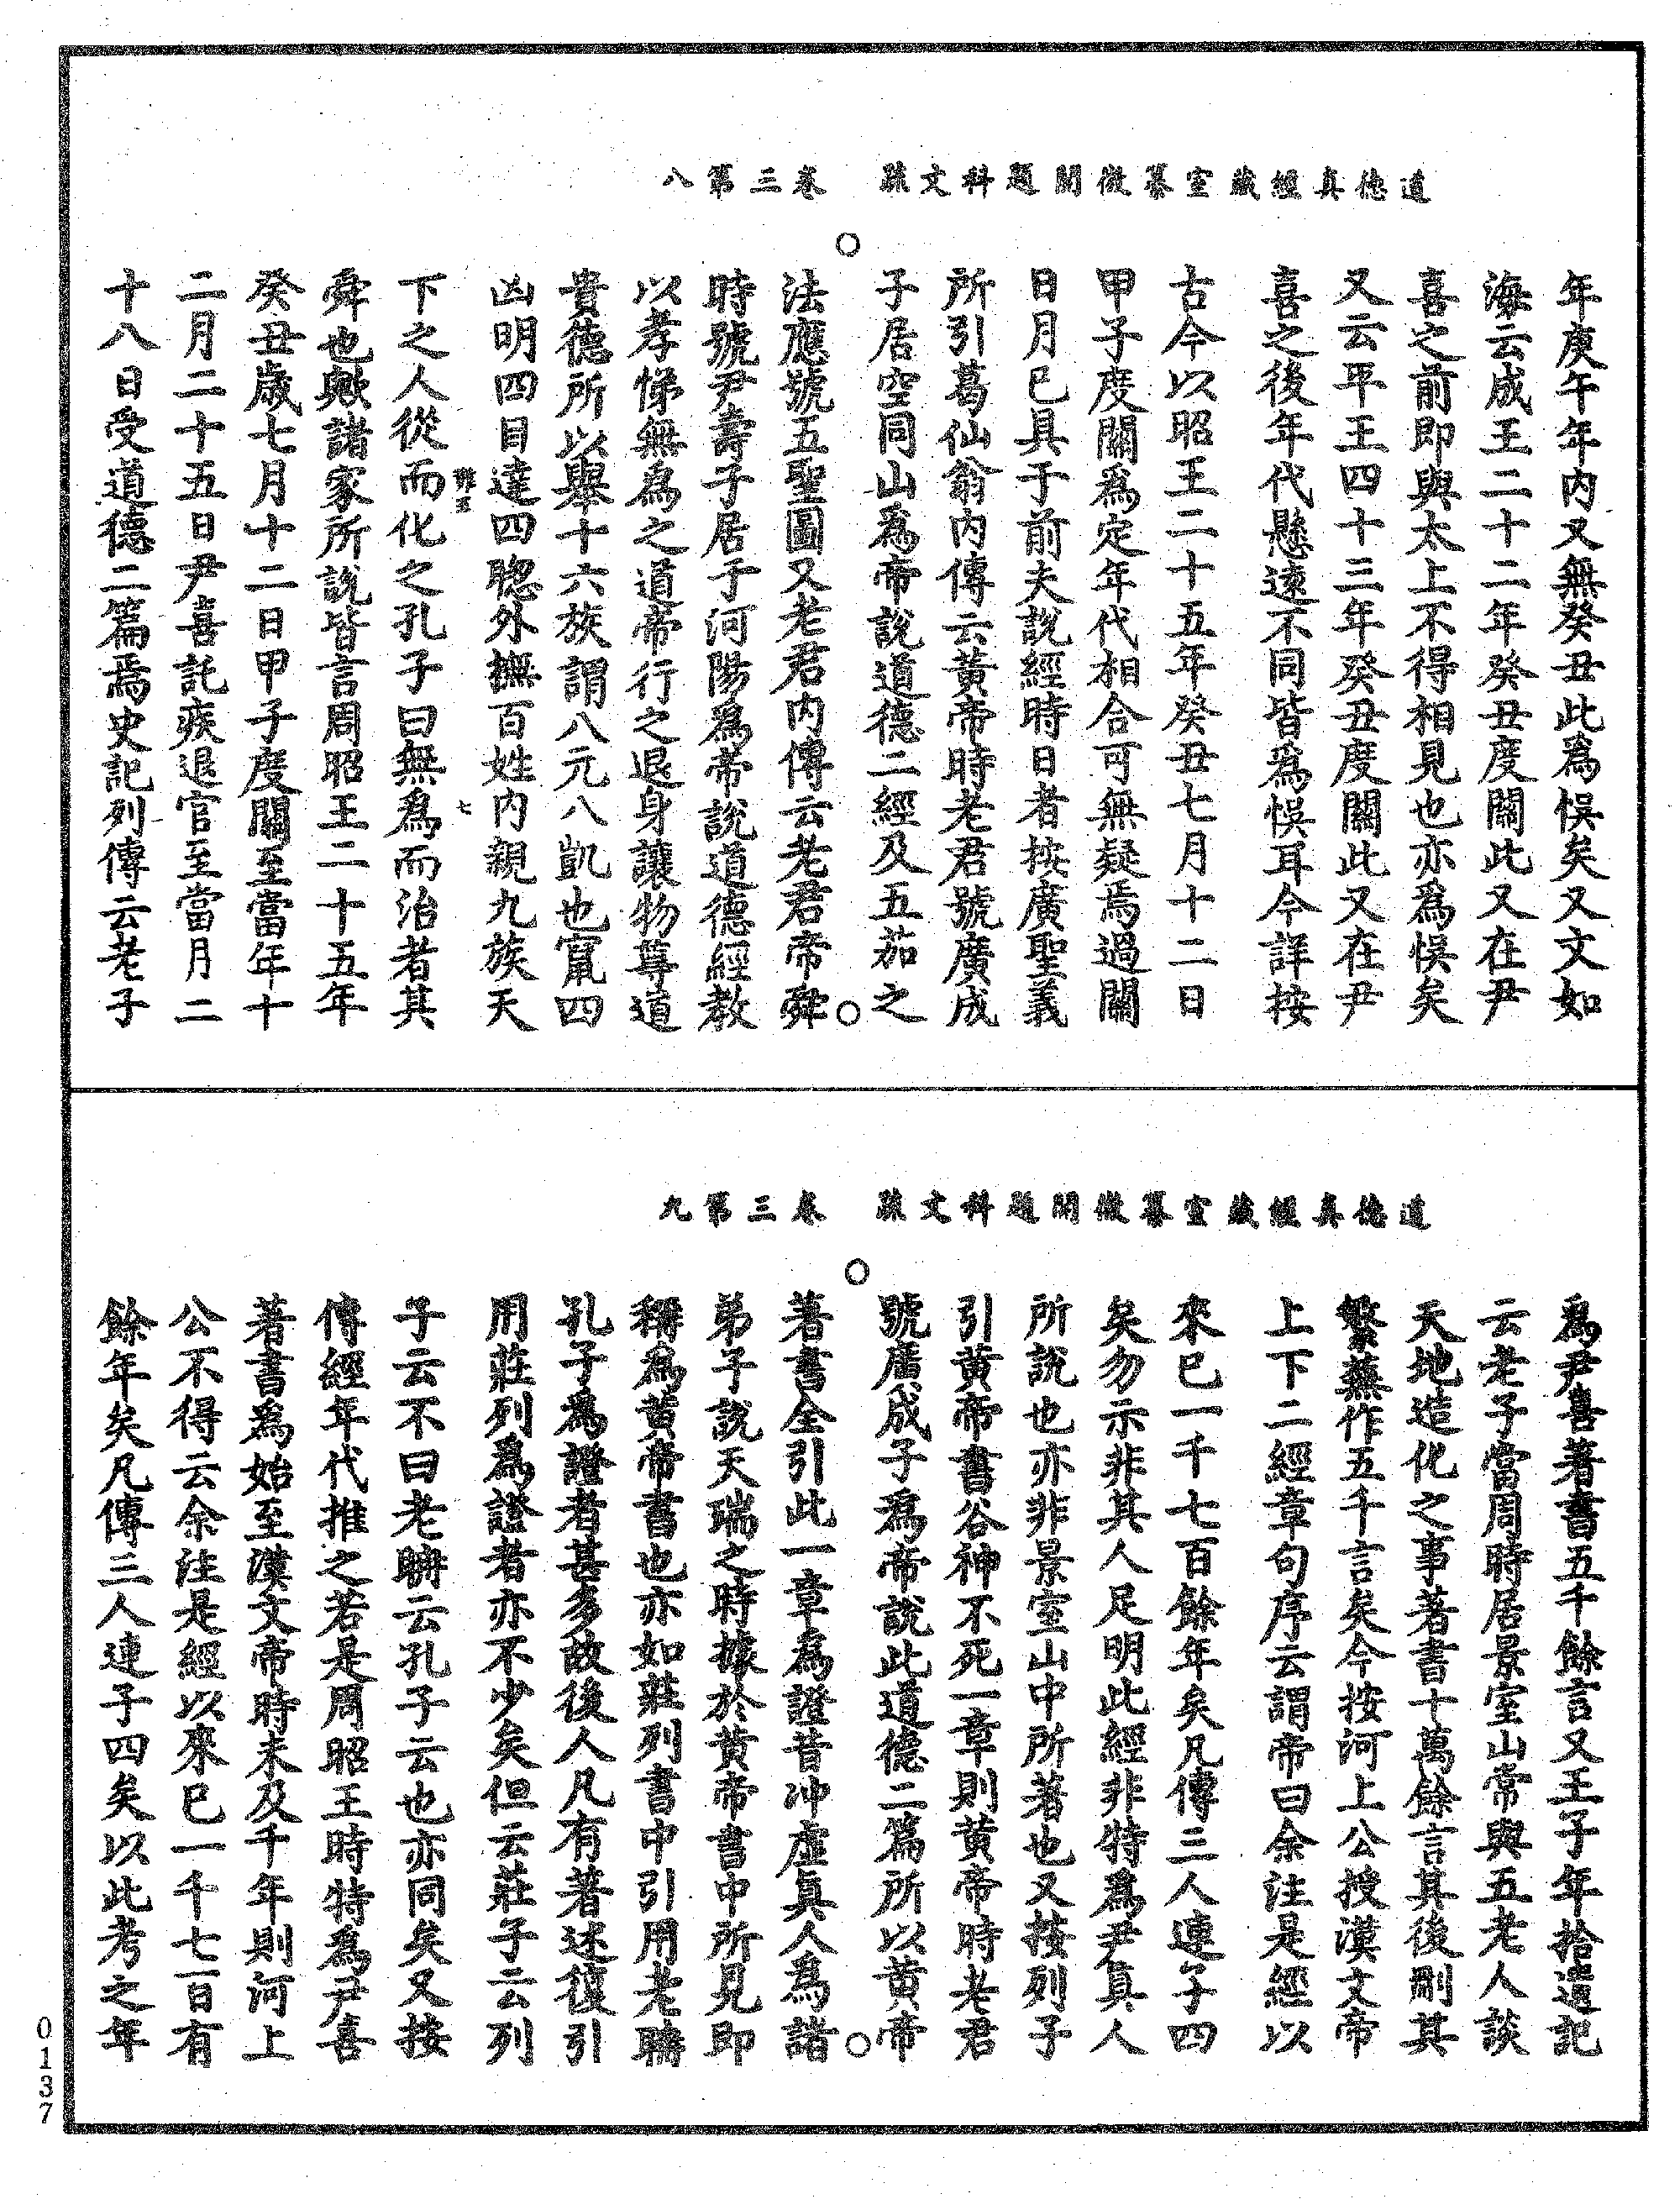 道德真經藏室纂微開題科文疏　卷三第八
年庚午年內又無癸丑此爲悞矣又文如
海云成王二十二年癸丑度關此又在尹
喜之前即與太上不得相見也亦爲悞矣
又云平王四十三年癸丑度關此又在尹
喜之後年代懸遠不同皆爲悞耳今詳按
古今以昭王二十五年癸丑七月十二日
甲子度關爲定年代相合可無疑焉過關
日月已具于前夫說經時日者按廣聖義
所引葛仙翁內傳云黃帝時老君號廣成
子居空同山爲帝說道德二經及五茄之
法應號五聖圖又老君內傳云老君帝舜
時號尹壽子居于河陽爲帝說道德經教
以孝悌無爲之道帝行之退身讓物尊道
貴德所以舉十六族謂八元八凱也竄四
凶明四目達四聦外撫百姓內親九族天
七
下之人從而化之孔子曰無爲而治者其
舜也歟諸家所說皆言周昭王二十五年
癸丑歲七月十二日甲子度關至當年十
二月二十五日尹喜託疾退官至當月二
十八日受道德二篇焉史記列傳云老子
道德真經藏室纂微開題科文疏　卷三第九
爲尹喜著書五千餘言又王子年拾遺記
云老子當周時居景室山常與五老人談
天地造化之事著書十萬餘言其後刪其
繁蕪作五千言矣今按河上公授漢文帝
上下二經章句序云謂帝曰余注是經以
來已一千七百餘年矣凡傳三人連子四
矣勿示非其人足明此經非特爲尹真人
所說也亦非景室山中所著也又按列子
引黃帝書谷神不死一章則黃帝時老君
號廣成子爲帝說此道德二篇所以黃帝
著書全引此一章爲證昔冲虛真人爲諸
弟子說天瑞之時據於黃帝書中所見即
稱爲黃帝書也亦如莊列書中引用老聃
孔子爲證者甚多故後人凡有著述復引
用莊列爲證者亦不少矣但云莊子云列
子云不曰老聃云孔子云也亦同矣又按
傳經年代推之若是周昭王時特爲尹喜
著書爲始至漢文帝時未及千年則河上
公不得云余注是經以來已一千七百有
餘年矣凡傳三人連子四矣以此考之年
0137